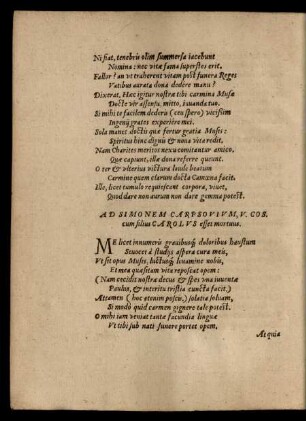 Ni fiat, tenebris olim summersa iacebunt
Nomina: nec vitæ fama superstes erit.
Fallor? an vt traherent vitam post funera Reges
Vatibus aurata dona dedere manu?
Dixerat, Hæc igitur nostræ tibi carmina Musæ
Docte vir assensu, mitto, iuuanda tuo.
Si mihi te facilem dederis (ceu spero) vicissim
Ingenij grates experiere mei.
Sola manet doctis quæ fertur gratia Musis:
Spiritus hinc dignis & noua vita redit.
Nam Charites meritos nexu comitantur amico,
Quæ capiunt, illa dona referre queunt.
O ter & vlterius victura laude beatum
Carmine quem clarum docta Camœna facit.
Ille, licet tumulo requiescant corpora, viuet,
Quod dare non aurum non dare gemma potest.
AD SIMONEM CARPSOVIUM, V. COS.
cum filius CAROLVS esset mortuus.
ME licet innumeris grauibusq; doloribus haustum
Seuocet à studijs aspera cura meis,
Vt sit opus Musis, doctusq; leuamine nobis,
Et mea quæsitam vita reposcat opem:
(Nam cecidit nostræ decus & spes vna iuuentæ
Paulus, & interitu tristia cuncta facit.)
Attamen (huc etenim poscis,) solatia soluam,
Si modò quid carmen gignere tale potest.
O mihi iam veniat tanta facundia linguæ
Vt tibi sub nati funere portet opem,
Atquia